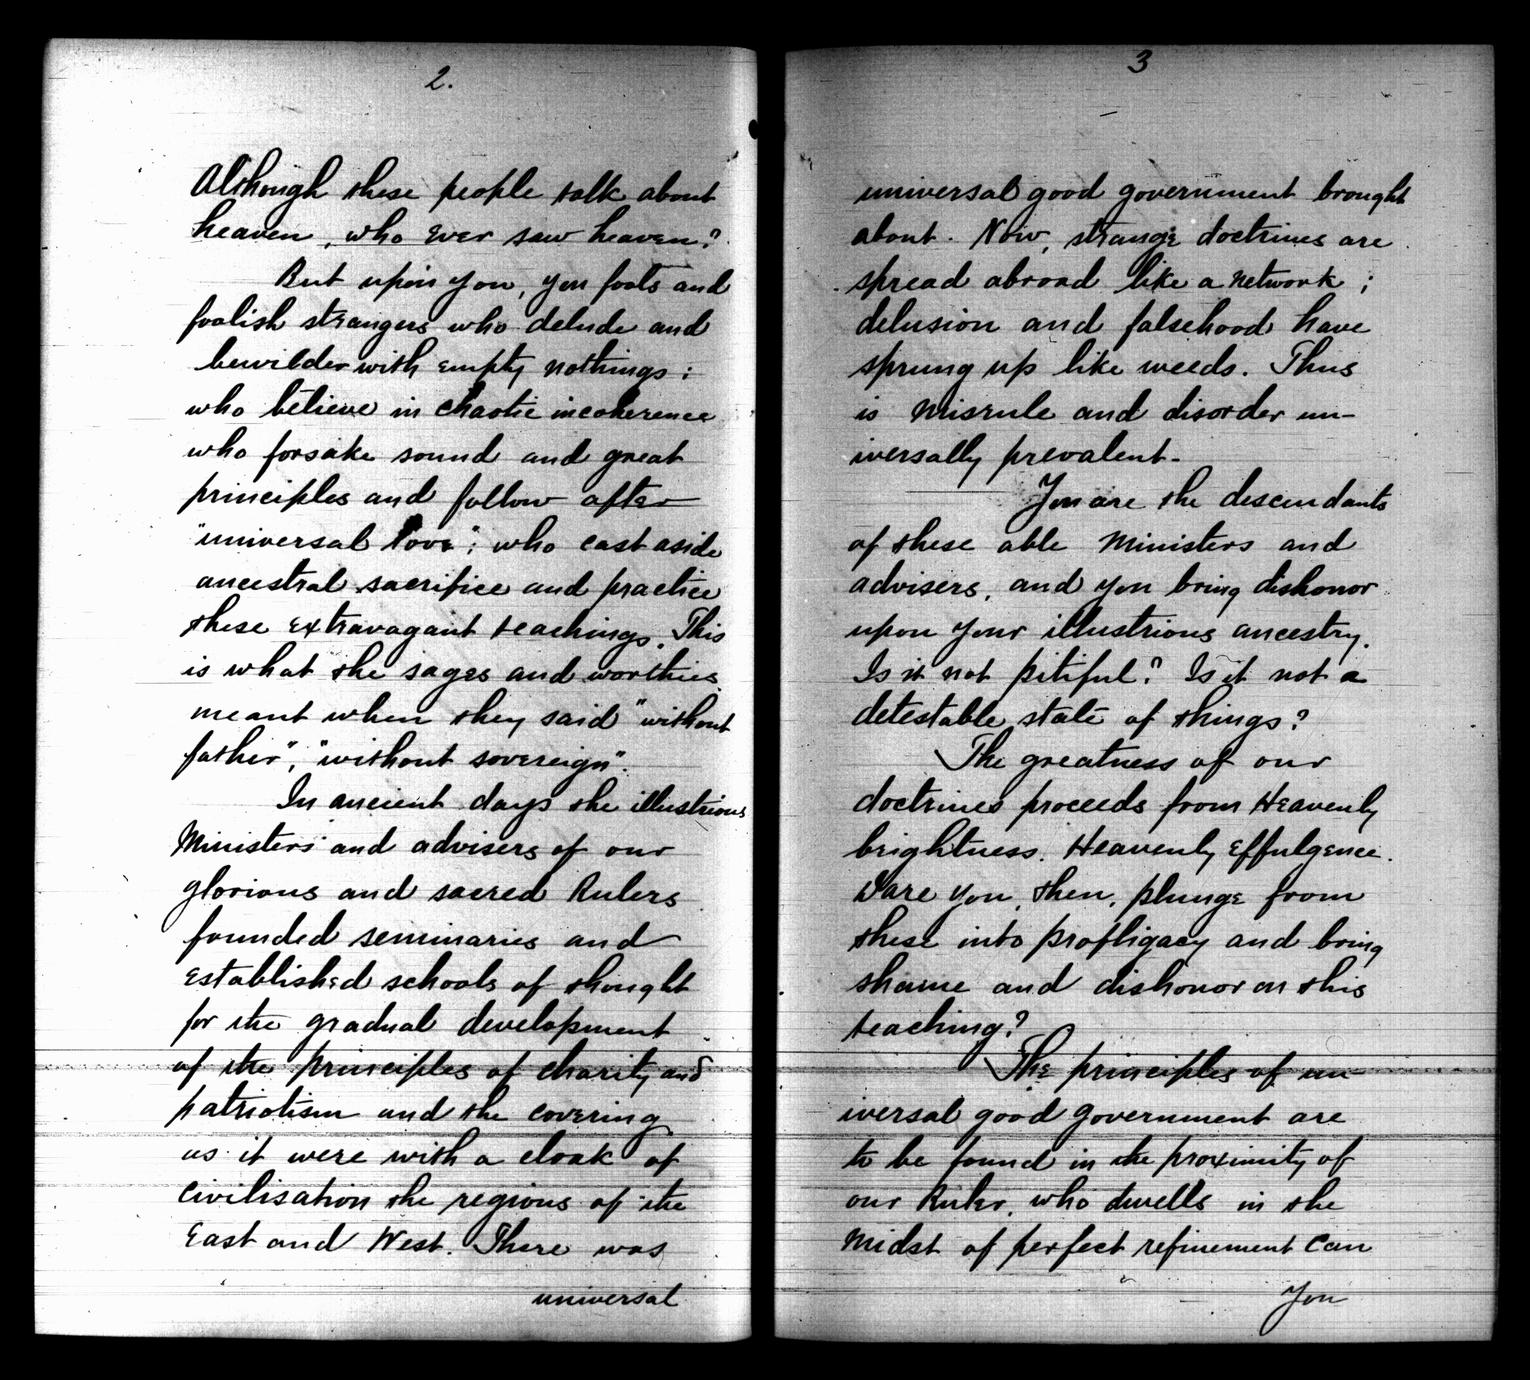 2.
Although these people talk about
heaven, who ever saw heaven?
But upon you, you fools and
foolish strangers who delude and
bewilder with empty nothings;
who believe in chaotic incoherence
who forsake sound and great
principles and follow after
"universal love"; who cast aside
ancestral sacrifice and practice
these extravagant teachings. This
is what the sages and worthies
meant when they said "without
father", "without sovereign".
In ancient days the illustrious
Ministers and advisers of our
glorious and sacred Rulers
founded seminaries and
established schools of thought
for the gradual development
of the principles of charity and
patriotism and the covering
as it were with a cloak of
civilisation the regions of the
East and West. There was
universal
3
universal good government brought
about. Now, strange doctrines are
spread abroad like a network;
delusion and falsehood have
sprung up like weeds. Thus
is misrule and disorder un-
iversally prevalent.
You are the descendants
of these able Ministers and
advisers, and you bring dishonor
upon your illustrious ancestry.
Is it not pitiful? Is it not a
detestable state of things?
The greatness of our
doctrines proceeds from Heavenly
brightness. Heavenly Effulgence.
Dare you, then, plunge from
these into profligacy and bring
shame and dishonor on this
teaching?
The principles of un-
iversal good government are
to be found in the proximity of
our Ruler, who dwells in the
midst of perfect refinement Can
You